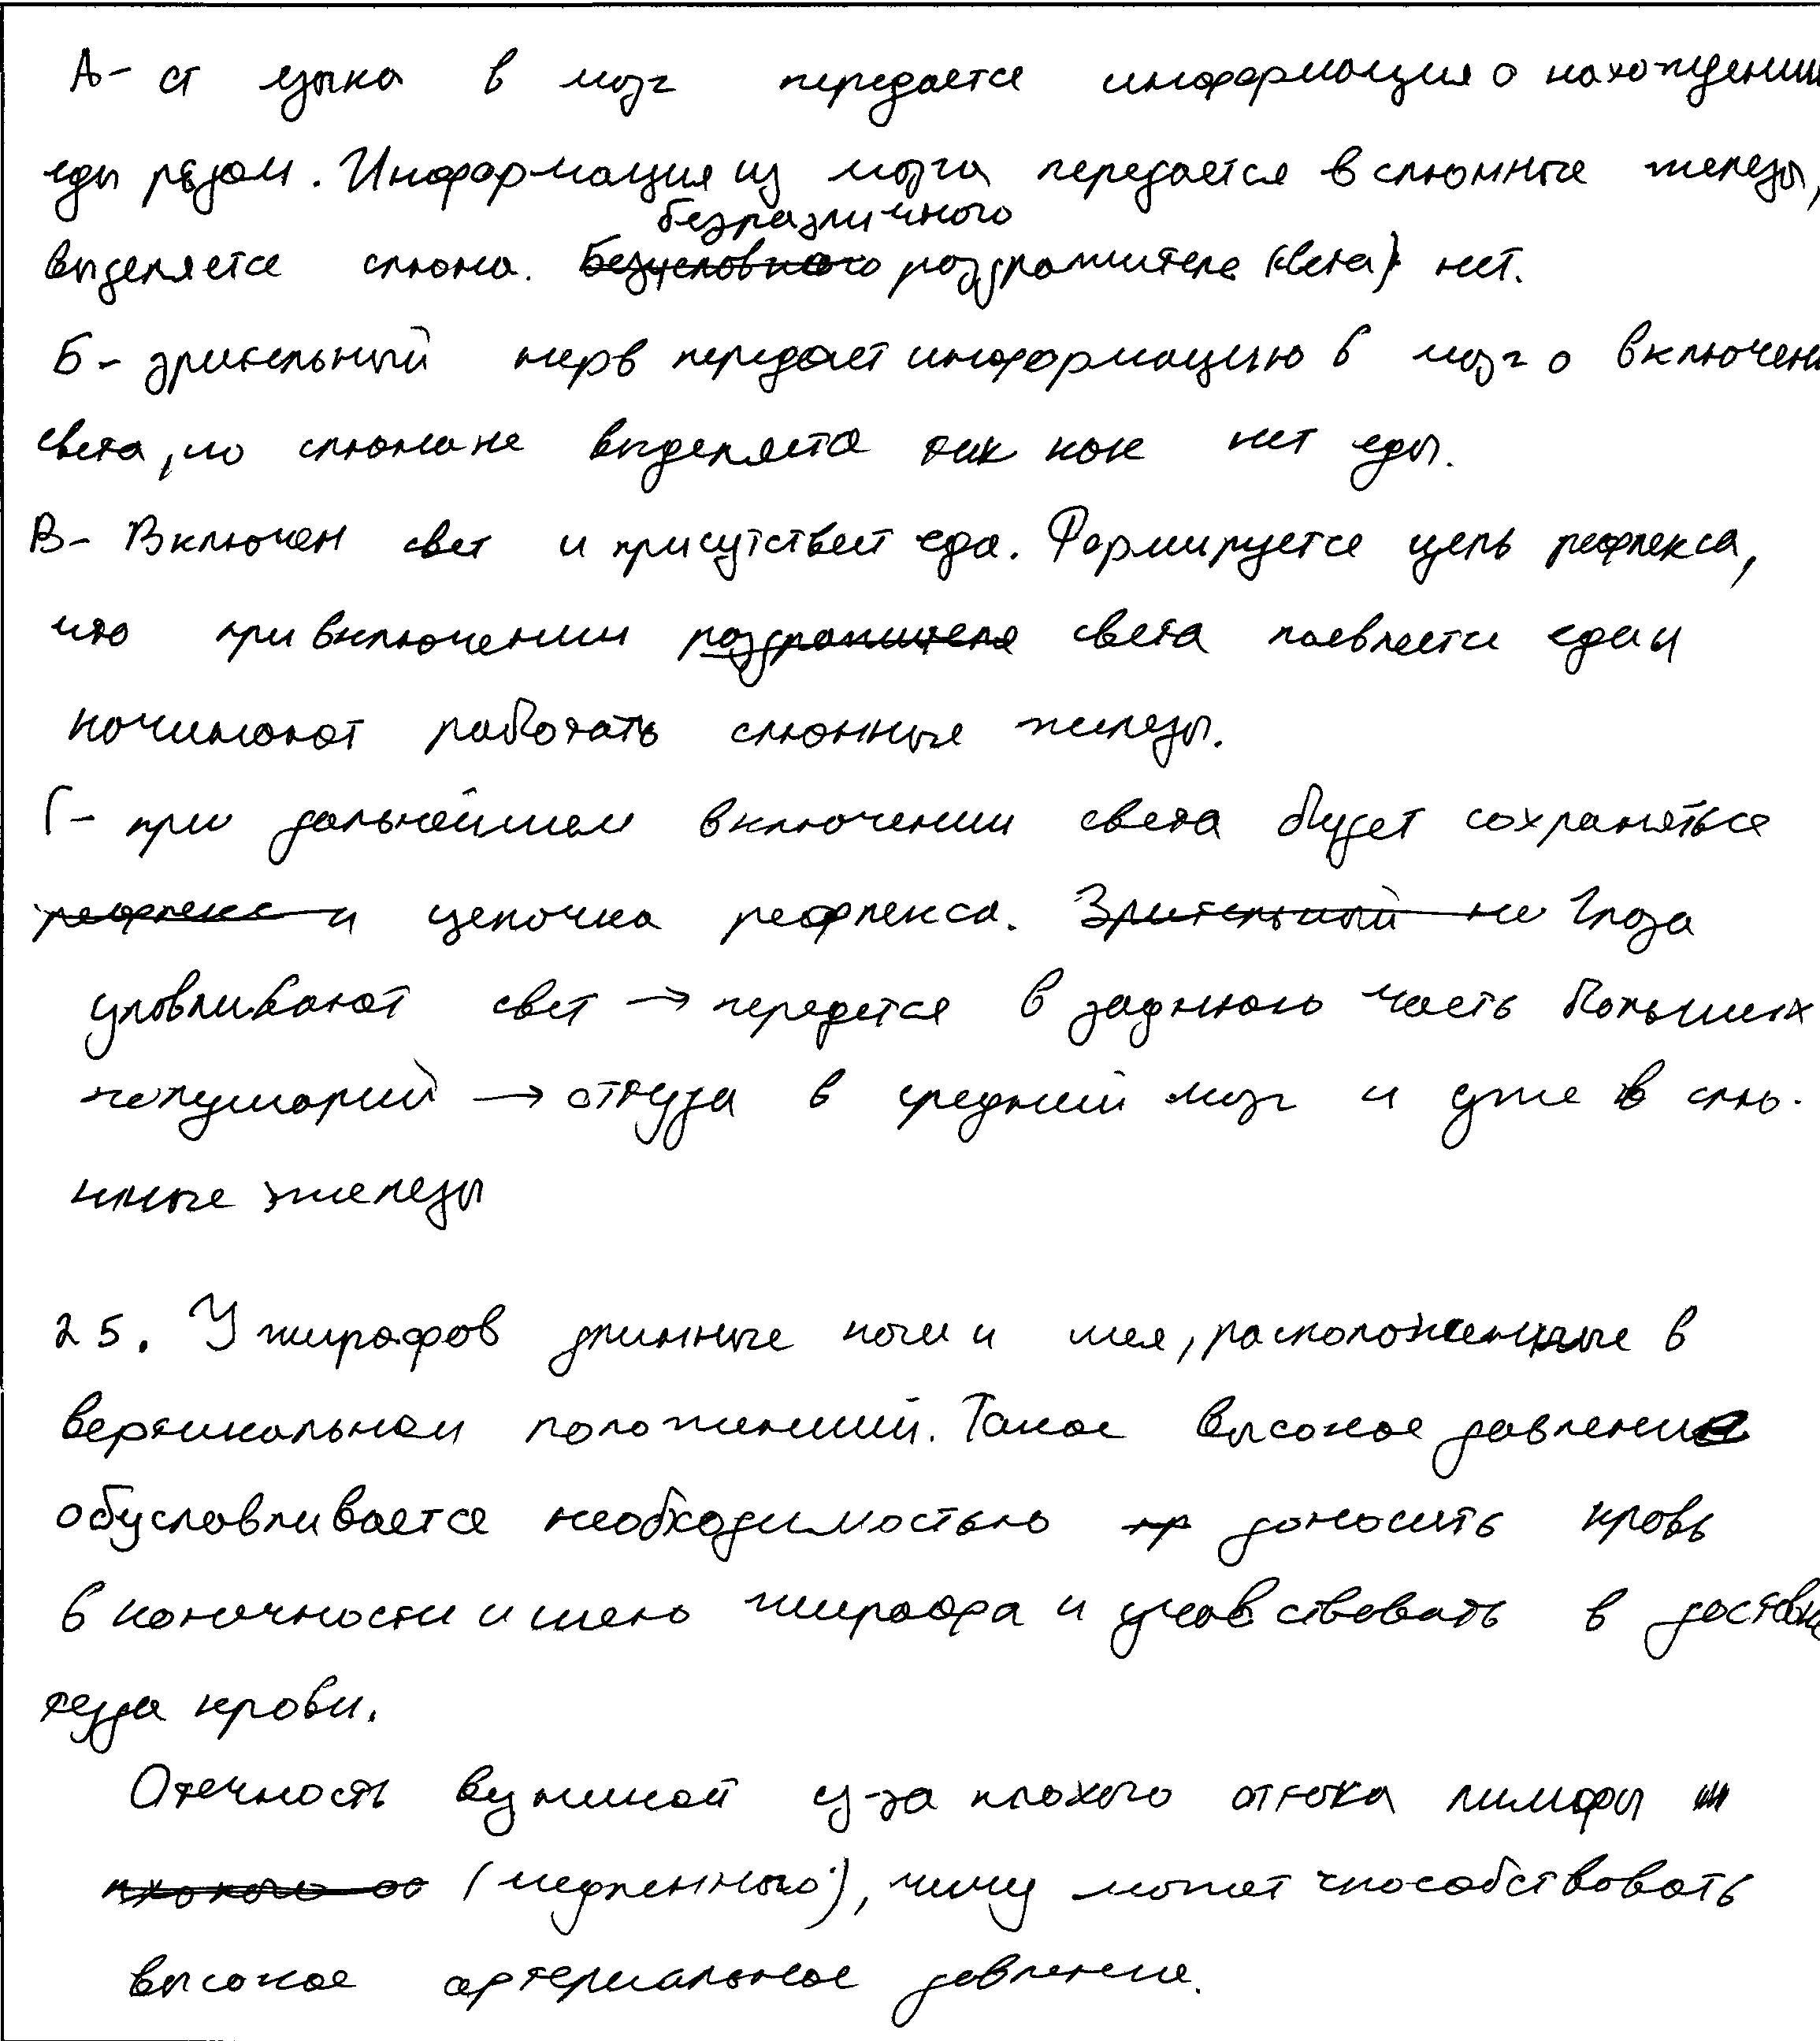 А- от языка в мозг передается информация о нахождении
еды рядом. Информация из мозга передается в слюнные железы,
безразличного
выделяется слюна. Безусловного раздражителя (света) нет.
Б- зрительный нерв передает информацию в мозг о включен
света, но слюна не выделяется так как нет еды.
В- Включен свет и присутствует еда. Формируется цепь рефлекса,
что при включении раздражителя света появляется еда и
начинают работать слюнные железы.
Г- при дальнейшем включении света будет сохраняться
рефлекс и цепочка рефлекса. Зрительный не Глаза
улавливают свет → передется в заднюю часть больших
полушарий → оттуда в средний мозг и уже в слю-
нные железы
25. У жирафов длинные ноги и шея, расположенные в
вертикальном положений. Такое высокое давление
обуславливается необходимостью пр доносить кровь
в конечности и шею жирафа и учавствовать в доставке
туда крови.
Отечность вызвиной из-за плохого оттока лимфы
плохого от (медленного), чему может способствовать
высокое артериальное давление.